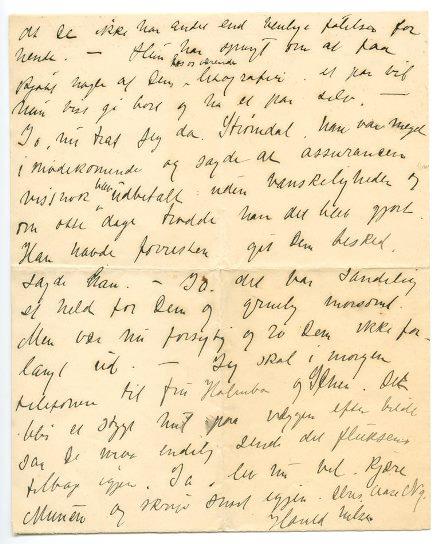 at De ikke har andet end venlige følelser for
hende. — Hun har spurgt om at faa
kjøbt nogen af Dem hos os værende litografier. et par vil
hun viss gi bort og ha et par selv. —
Ja, nu traf jeg da Strømdal, han var meget
imødekommende og sagde at assurancen
vistnok blev udbetalt uden vanskeligheder og
om otte dage trodde han det blev gjort.
Han havde forresten git Dem besked,
sagde han. — Ja, det var sandelig
et held for Dem og grulig morsomt.
Men vær nu forsigtig og ro Dem ikke for
langt ud. — Jeg skal i morgen
telefonere til fru Holmboe og Schou. Det
blir et stygt hul paa væggen efter bildet
saa De maa endelig sende det fluksens
tilbage igjen. Ja, lev nu vel, kjære
Munch og skriv snart igjen.
Harald Nilsen